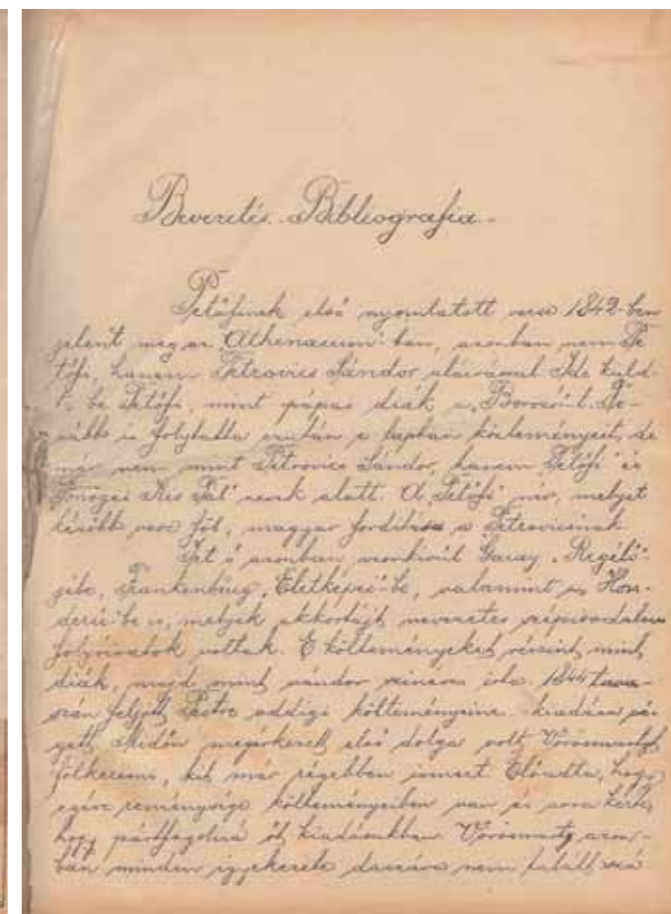 Bevezetés. Bibliografia.
Petőfinek első nyomtatott verse 1842-ben
jelent meg az Athenaeum-ban, azonban nem Pe-
tőfi, hanem Petrovics Sándor aláírással. Ide küld-
te be Petőfi, mint pápai diák a „Borozó"-t. To-
vább is folytatta ezután e lapban közleményeit, de
már nem mint Petrovics Sándor, hanem „Petőfi" és
„Pönögei Kis Pál" nevek alatt. A „Petőfi" név, melyet
később vesz föl, magyar fordítása a Petrovicsnak.
Írt ő azonban ezenkívül Garay „Regélő"-
jébe, Frankenburg „Életképei"-be, valamint a „Hon-
derű"-be is, melyek akkortájt nevezetes szépirodalmi
folyóiratok voltak. E költeményeket részint mint
diák, majd mint vándor színész írta. 1844 tava-
szán feljött Pestre addigi költeményeine kiadása
Midőn megérkezett első dolga volt Vörösmartyt
fölkeresni, kit már régebben ismert. Előadta, hogy
egész reménysége költeményeiben van és arra kérte,
hogy pártfogolná őt kiadásukban. Vörösmarty azon-
ban minden igyekezete daczára nem talált